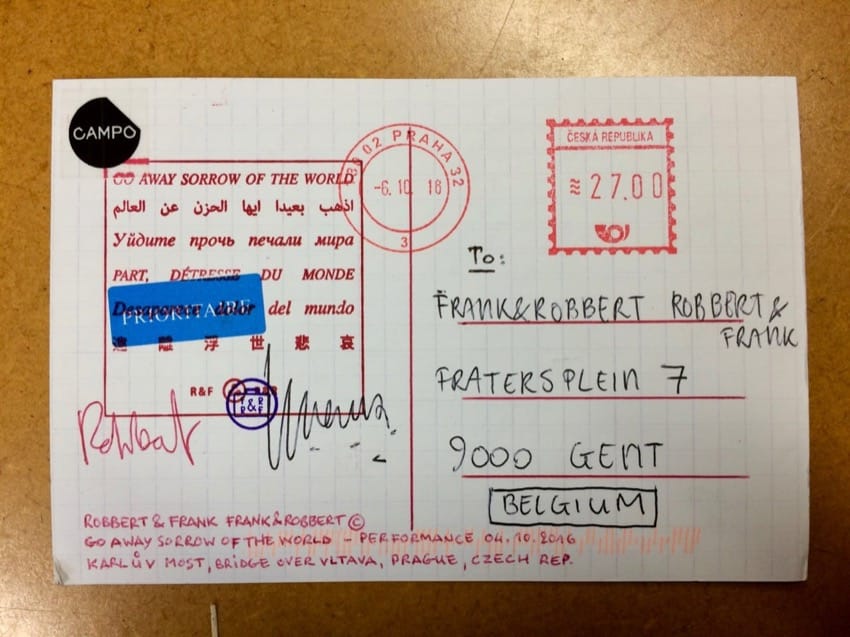 CAMPO
GO AWAY SORROW OF THE WORLD
اذهب بعيدا ايها الحزن عن العالم
Уйдите прочь печали мира
PART, DÉTRESSE DU MONDE
Desaparece dolor del mundo
PRIORITAIRE
遠 離 浮 世 悲 哀
R&F
Robbert
ROBBERT & FRANK FRANK & ROBBERT ©
GO AWAY SORROW OF THE WORLD – PERFORMANCE 04.10.2016
KARLŮV MOST, BRIDGE OVER VLTAVA, PRAGUE, CZECH REP.
02 PRAHA 32
-6.10.16
3
ČESKÁ REPUBLIKA
≋ 27.00
To:
FRANK&ROBBERT ROBBERT &
FRANK
FRATERSPLEIN 7
9000 GENT
BELGIUM